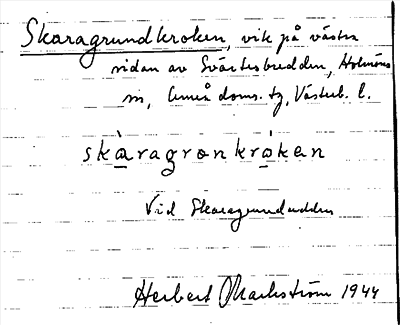 Skaragrundkroken, vik på västra
sidan av Svärtesbredden, Holmöns
sn, Umeå doms. tg, Västerb. l.
skàragronkròken
Vid Skaragrundudden
Herbert Markström 1944